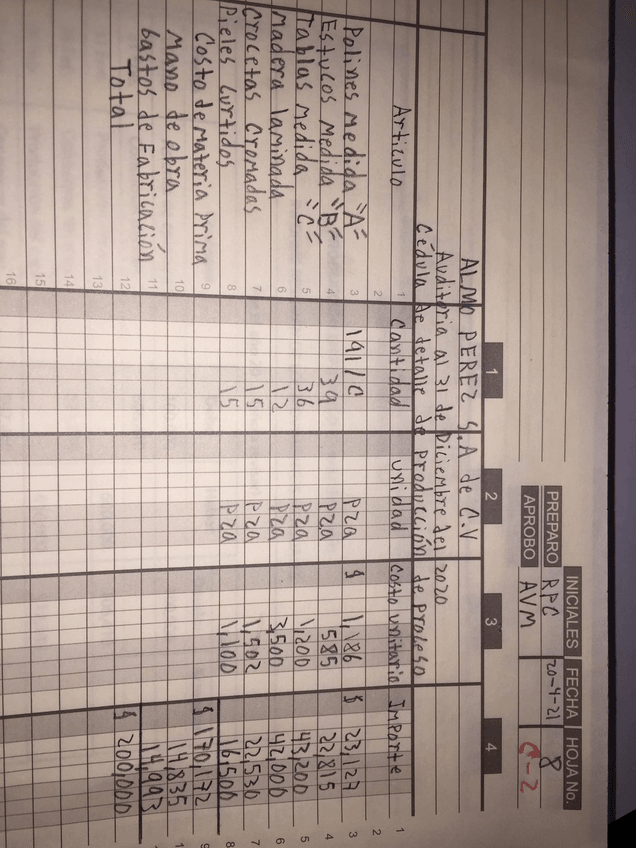 INICIALES FECHA HOJA No.
PREPARO RPC 20-4-21 8
APROBO AVM C-2
ALMO PEREZ S.A de C.V
Auditoria al 31 de Diciembre del 2020
Cédula de detalle de producción de proceso
1 2 3 4
Articulo 1 Cantidad unidad costo unitario Importe 1
2 2
Polines medida "A" 3 19 1/C Pza $ 1,186 $ 23,127 3
Estucos medida "B" 4 39 Pza 585 22,815 4
Tablas medida "C" 5 36 Pza 1,200 43,200 5
Madera laminada 6 12 Pza 3,500 42,000 6
Crocetas Cromadas 7 15 Pza 1,502 22,530 7
Pieles curtidos 8 15 Pza 1,100 16,500 8
Costo de Materia Prima 9 $ 170,172 9
Mano de obra 10 14,835 1
Gastos de Fabricación 11 14,993
Total 12 $ 200,000
13
14
15
16